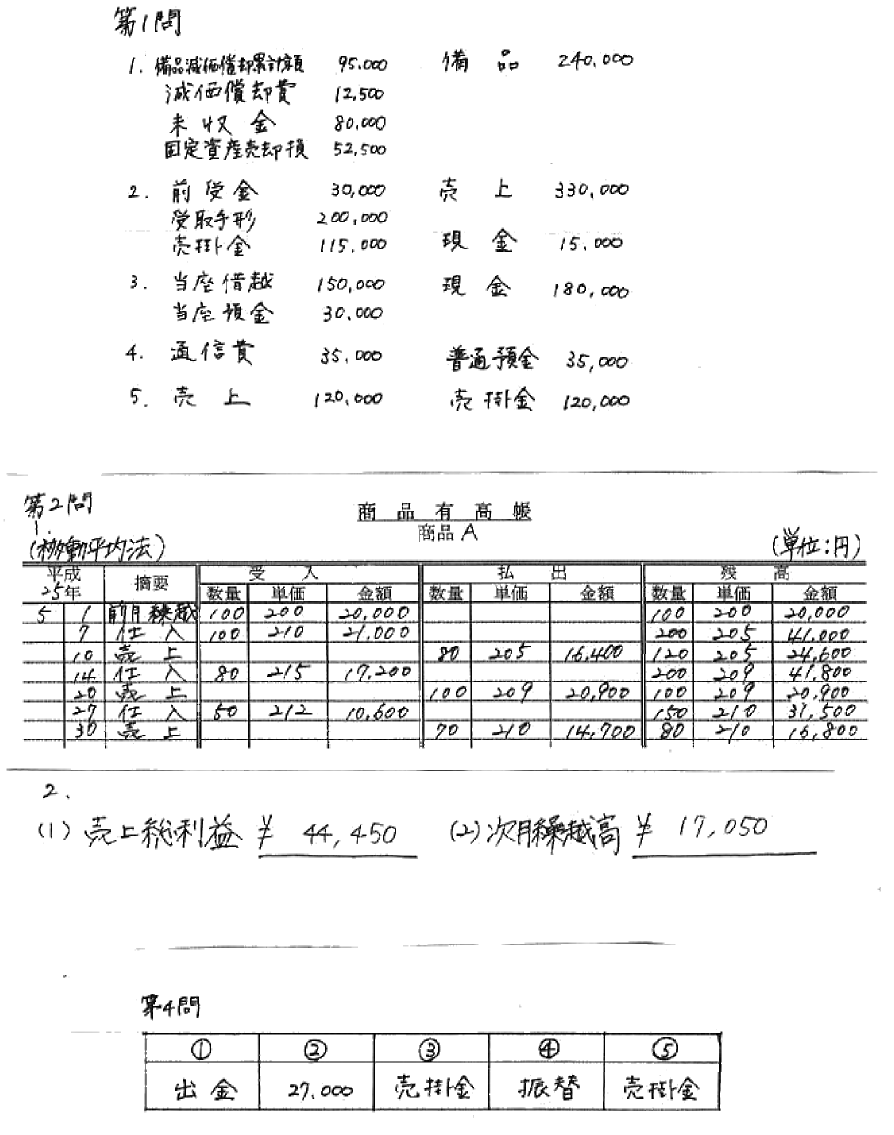 第1問
1. 備品減価償却累計額 95,000 備品 240,000
減価償却費 12,500
未収金 80,000
固定資産売却損 52,500
2. 前受金 30,000 売上 330,000
受取手形 200,000
売掛金 115,000 現金 15,000
3. 当座借越 150,000 現金 180,000
当座預金 30,000
4. 通信費 35,000 普通預金 35,000
5. 売上 120,000 売掛金 120,000
第2問
商品有高帳
1.
商品A
(移動平均法) (単位:円)
平成25年 摘要 受入 払出 残高
数量 単価 金額 数量 単価 金額 数量 単価 金額
5 1 前月繰越 100 200 20,000 100 200 20,000
7 仕入 100 210 21,000 200 205 41,000
10 売上 80 205 16,400 120 205 24,600
14 仕入 80 215 17,200 200 209 41,800
20 売上 100 209 20,900 100 209 20,900
27 仕入 50 212 10,600 150 210 31,500
30 売上 70 210 14,700 80 210 16,800
2.
(1) 売上総利益 ¥ 44,450 (2) 次月繰越高 ¥ 17,050
第4問
① ② ③ ④ ⑤
出金 27,000 売掛金 振替 売掛金